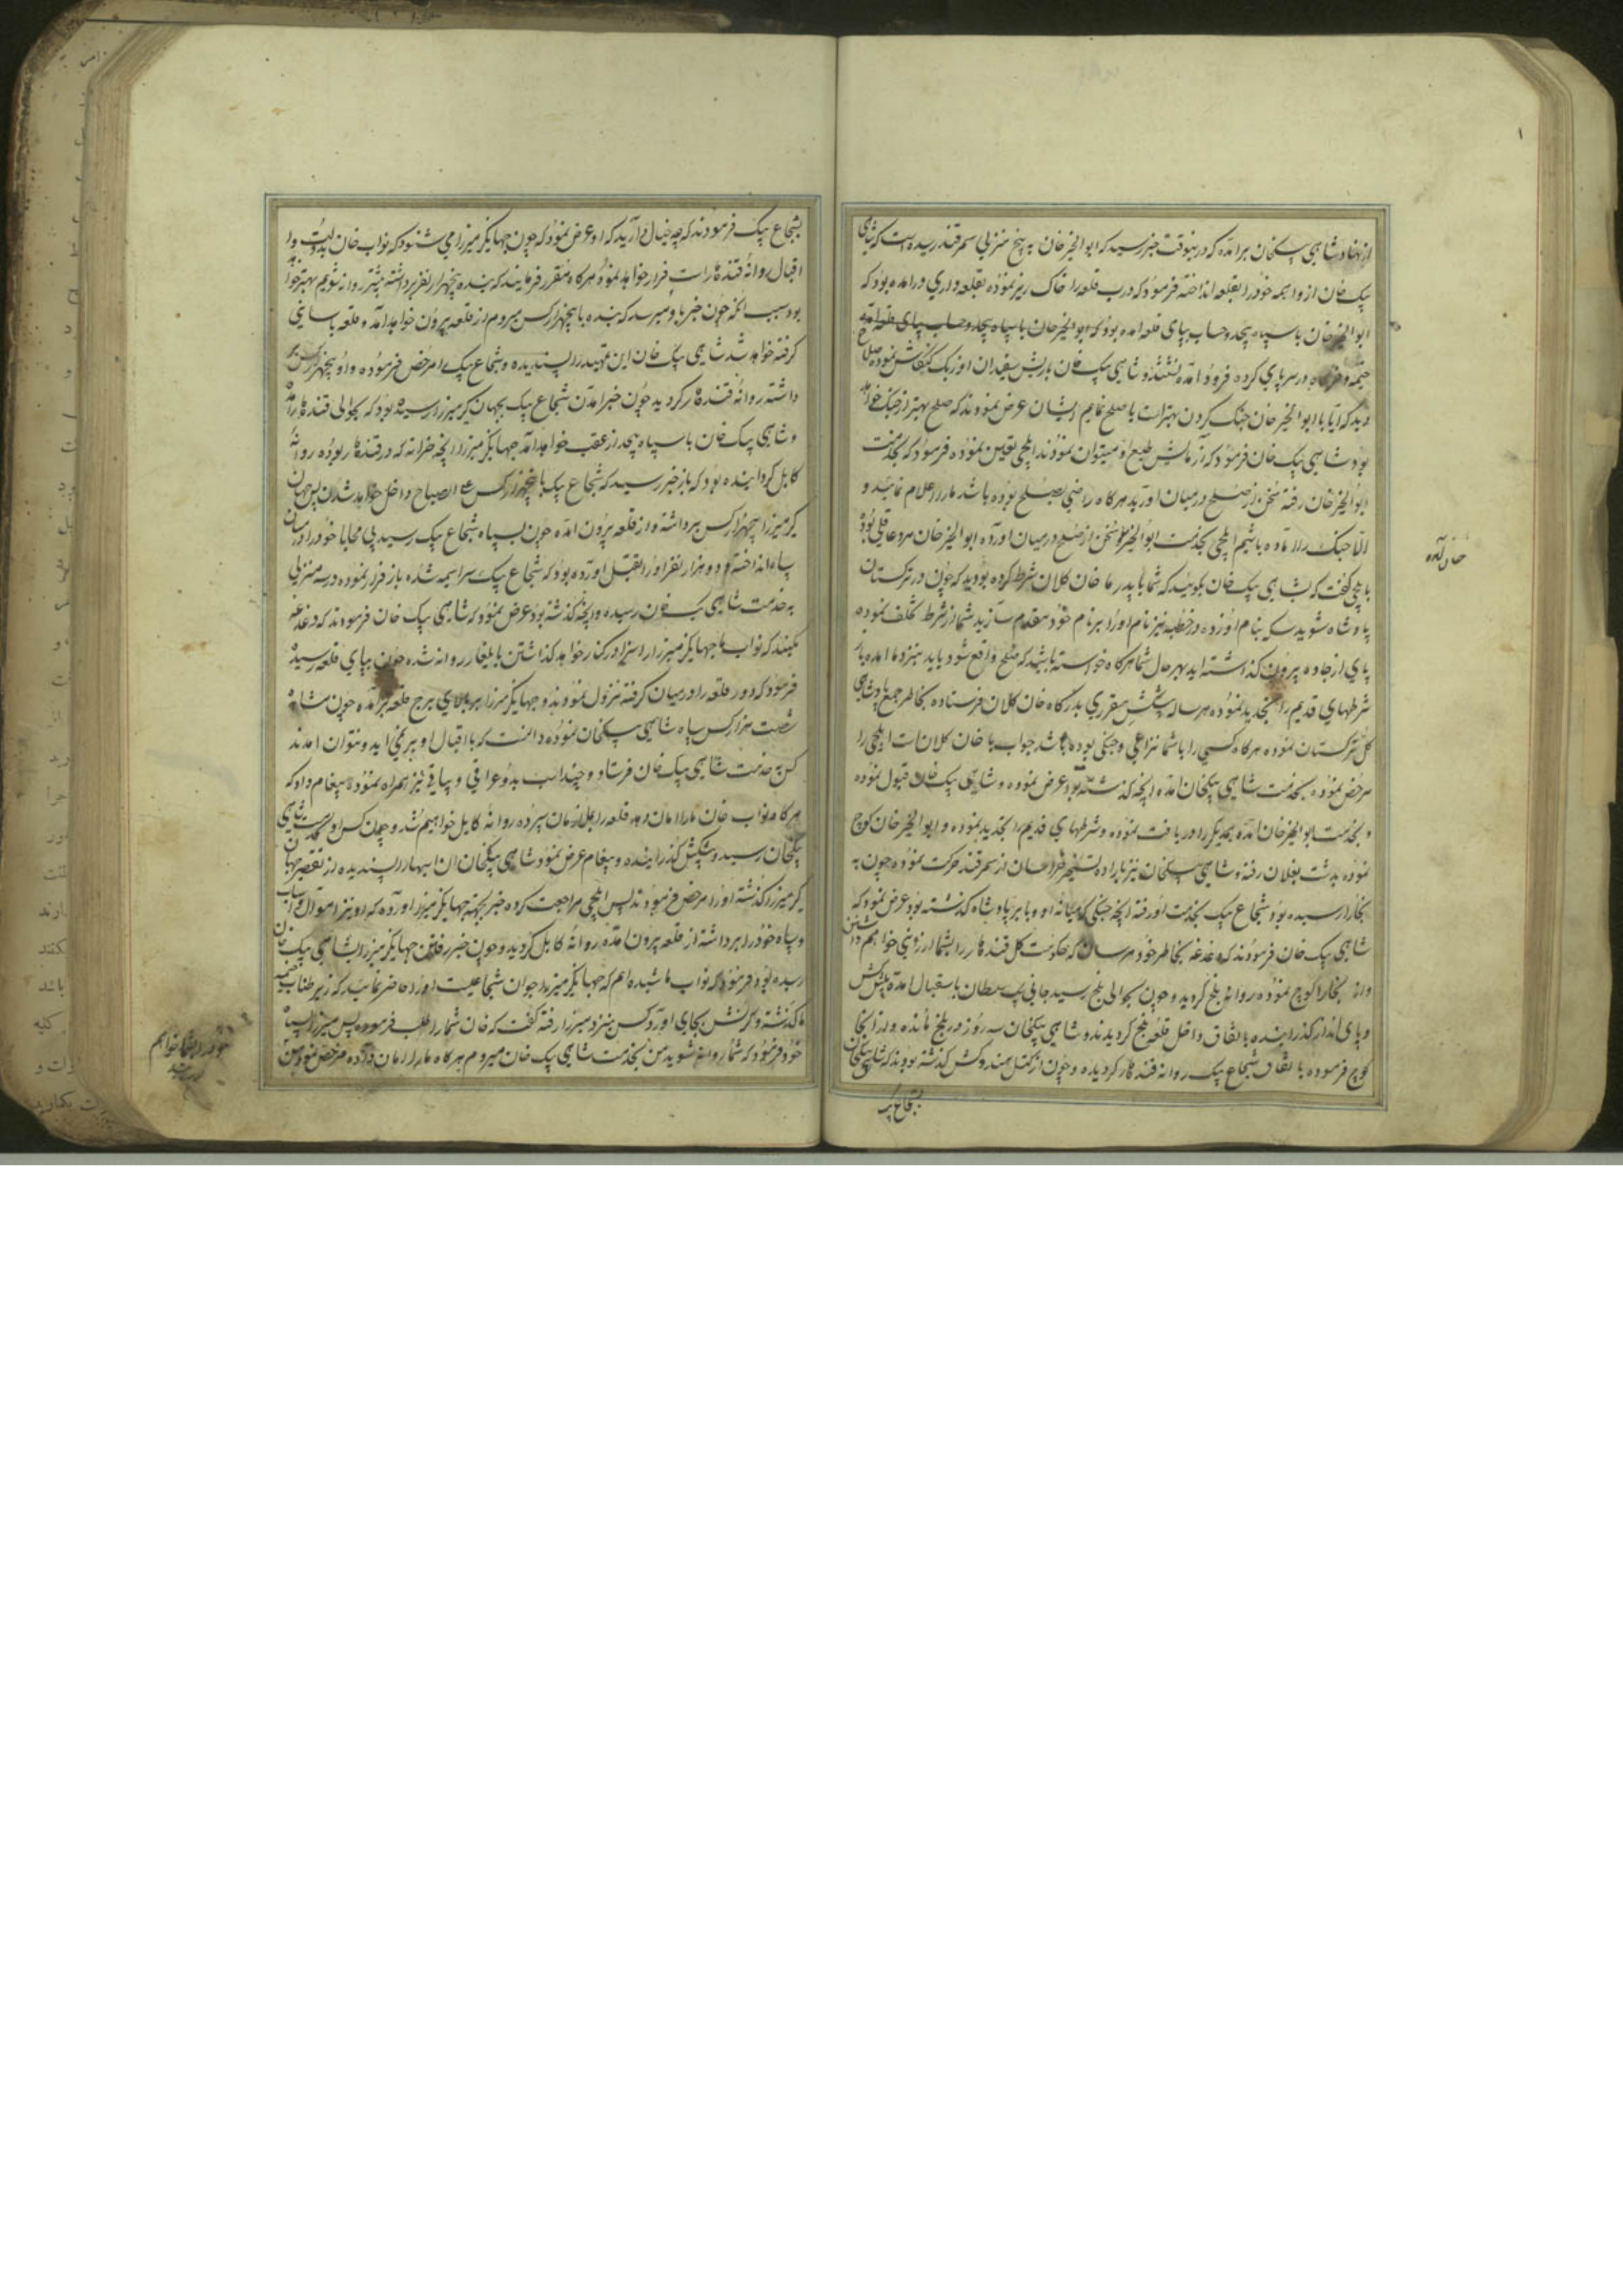 از نهاد شاهی بیکخان برآمده که درینوقت خبر رسید که ابوالخیر خان به پنج منزلی سمرقند رسیده است که شاهی
بیک خان از واهمه خود را بقلعه انداخته فرمود که درب قلعه را خاک ریز نموده بقلعه داری درامده بود که
ابوالخیر خان با سپاه بیحد و حساب بپای قلعه امده بود که ابوالخیر خان با سپاه بیحد و حساب بپای قلعه امده
خیمه و خرگاه در سر پای کرده فرود آمده نشستند و شاهی بیک خان با ریش سفیدان اوزبک کنکاش نموده صلاح
دید که آیا با ابوالخیر خان جنک کردن بهتر است یا صلح نمایم ایشان عرض نمودند که صلح بهتر از جنک خواهد
بود شاهی بیک خان فرمود که از مالش طبع او میتوان نمودند ایلچی تعیین نموده فرمود که بخدمت
ابوالخیر خان رفته سخن از صلح درمیان اورید هرکاه راضی بصلح بوده باشد ما را اعلام نمائید و
الا جنک را آماده باشیم ایلچی بخدمت ابوالخیر خان سخن از صلح درمیان اورده ابوالخیر خان مرد عاقلی بود
بایلچی کفت که بشاهی بیک خان بکوئید که شما با پدر ما خان کلان شرط کرده بودید که چون در ترکستان
پادشاه شوید سکه بنام او زده در خطبه نیز نام او را بر نام خود مقدم سازید شما از شرط تخلف نموده
پای از جاده بیرون کذاشته اید بهر حال شما هرکاه خواسته باشید که صلح واقع شود باید بنزد ما امده باز
شرطهای قدیم را تجدید نموده هرساله پیشکش مقرری بدرکاه خان کلان فرستاده بخاطر جمع پادشاهی
کل ترکستان نموده هرکاه کسی را با شما نزاعی و جنکی بوده باشد جواب با خان کلان است ایلچی را
مرخص نموده بخدمت شاهی بیکخان امده انچه کذشته بود عرض نموده و شاهی بیک خان قبول نموده
و بخدمت ابوالخیر خان امده یکدیکر را دریافت نموده و شرطهای قدیم را تجدید نموده و ابوالخیر خان کوچ
نموده بدشت بغلان رفته و شاهی بیکخان نیز باراده تسخیر خراسان از سمرقند حرکت نموده چون به
بخارا رسیده بود شجاع بیک بخدمت او رفته انچه جنکی که میانه او و بابر پادشاه کذشته بود عرض نمود که
شاهی بیک خان فرمودند که دغدغه بخاطر خود مرسان که حکومت کل قندهار را بشما ارزونی خواهم داشتن
و از بخارا کوچ نموده روانه بلخ کردید و چون بحوالی بلخ رسید جانی بیک سلطان باستقبال امده پیشکش
و پای انداز کذرانیده باتفاق داخل قلعه بلخ کردیدند و شاهی بیکخان سه روز در بلخ مانده و از انجا
کوچ فرموده باتفاق شجاع بیک روانه قندهار کردیده و چون از کتل هندوکش کذشته بودند که شاهی بیکخان
بشجاع بیک
خان آمده
بشجاع بیک فرمودند که چه خیال دارید که او عرض نمود که چون جهانکیر میرزا می شنود که نواب خان بدولت و
اقبال روانه قندهار است فرار خواهد نمود هرکاه مقرر فرمایند که بنده پنجهزار نفر برداشته پیشتر روانه شویم بهتر خواهد
بود سبب انکه چون خبر باو میرسد که بنده با پنجهزار کس میروم از قلعه بیرون خواهد آمد و قلعه باسانی
کرفته خواهد شد شاهی بیک خان این تمهید را پسندیده و شجاع بیک را مرخص فرموده و او پنجهزار کس بر
داشته روانه قندهار کردید چون خبر امدن شجاع بیک بجهانکیر میرزا رسیده بود که بحوالی قندهار آمده
و شاهی بیک خان با سپاه بیحد از عقب خواهد آمد جهانکیر میرزا انچه خزانه که در قندهار بوده روانه
کابل کردانیده بود که باز خبر رسید که شجاع بیک با پنجهزار کس علی الصباح داخل خواهد شدن پس جهان
کیر میرزا پنجهزار کس برداشته و از قلعه بیرون امده چون بسپاه شجاع بیک رسید بی محابا خود را در میان
سپاه انداخته و دو هزار نفر او را بقتل اورده بود که شجاع بیک سراسیمه شده باز فرار نموده در سه منزلی
به خدمت شاهی بیک خان رسیده و انچه کذشته بود عرض نمود که شاهی بیک خان فرمودند که دغدغه
مکنید که نواب ما جهانکیر میرزا را سزا در کنار خواهد کذاشتن بایلغار روانه شده چون بپای قلعه رسیده
فرمود که دور قلعه را درمیان کرفته نزول نمودند و جهانکیر میرزا بر بالای برج قلعه برآمده چون مشاهده
شصت هزار کس سپاه شاهی بیکخان نموده دانست که با اقبال او بر نمی اید و نتوان امدند
کس به خدمت شاهی بیک خان فرستاد و چند اسب بدوی عراقی و یراقی نیز همراه نموده پیغام داد که
هرکاه نواب خان ما را امان دهد قلعه را بملازمان سپرده روانه کابل خواهیم شد و چون کس او بخدمت شاهی
بیکخان رسید و پیشکش کذرانیده و پیغام عرض نمود شاهی بیکخان ان اسبها را پسندیده از تقصیر جهان
کیر میرزا کذشته او را مرخص فرمودند پس ایلچی مراجعت کرده خبر بجهته جهانکیر میرزا اورده که او نیز اموال و اسباب
و سپاه خود را برداشته از قلعه بیرون امده روانه کابل کردید و چون خبر رفتن جهانکیر میرزا بشاهی بیک خان
رسیده بود فرمود که نواب ما شنیده ام که جهانکیر میرزا جوان شجاعیست او را حاضر نمائید که زیر طناب خیمه
ما کذشته و کرنش بجای اورد کس بنزد میرزا رفته کفت که خان شما را طلب فرموده پس میرزا بسپاه
خود فرمود که شما روانه شوید من بخدمت شاهی بیک خان میروم هرکاه ما را امان داده مرخص نمود من
خود را بشما خواهم
رسانید